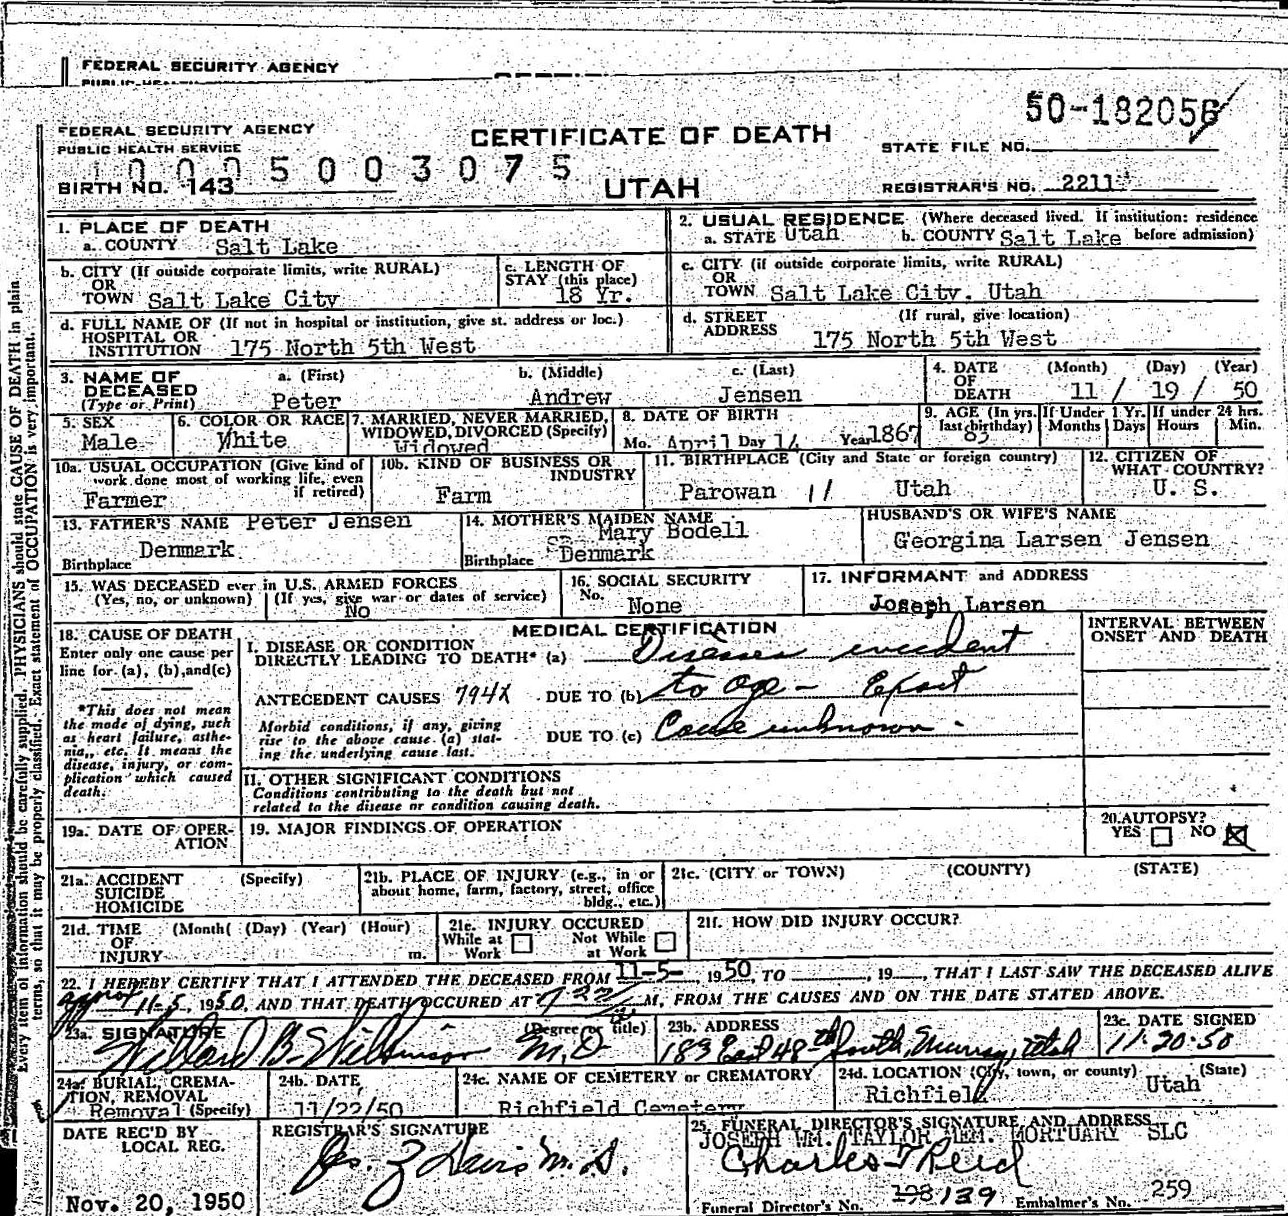 FEDERAL SECURITY AGENCY
50-182056
FEDERAL SECURITY AGENCY
PUBLIC HEALTH SERVICE
CERTIFICATE OF DEATH
STATE FILE NO.
1000500 3075
BIRTH NO. 143
UTAH
REGISTRAR'S NO. 2211
1. PLACE OF DEATH
a. COUNTY Salt Lake
2. USUAL RESIDENCE (Where deceased lived. If institution: residence before admission)
a. STATE Utah b. COUNTY Salt Lake
b. CITY (If outside corporate limits, write RURAL)
OR
TOWN Salt Lake City
c. LENGTH OF
STAY (this place)
18 Yr.
c. CITY (if outside corporate limits, write RURAL)
OR
TOWN Salt Lake City, Utah
d. FULL NAME OF (If not in hospital or institution, give st. address or loc.)
HOSPITAL OR
INSTITUTION 175 North 5th West
d. STREET (If rural, give location)
ADDRESS 175 North 5th West
3. NAME OF DECEASED (Type or Print)
a. (First) b. (Middle) c. (Last)
Peter Andrew Jensen
4. DATE OF DEATH (Month) (Day) (Year)
11 / 19 / 50
5. SEX
Male
6. COLOR OR RACE
White
7. MARRIED, NEVER MARRIED,
WIDOWED, DIVORCED (Specify)
Widowed
8. DATE OF BIRTH
Mo. April Day 14 Year 1867
9. AGE (In yrs. last birthday)
83
If Under 1 Yr.
Months Days
If under 24 hrs.
Hours Min.
10a. USUAL OCCUPATION (Give kind of
work done most of working life, even
if retired)
Farmer
10b. KIND OF BUSINESS OR
INDUSTRY
Farm
11. BIRTHPLACE (City and State or foreign country)
Parowan 11 Utah
12. CITIZEN OF
WHAT COUNTRY?
U. S.
13. FATHER'S NAME Peter Jensen
Birthplace Denmark
14. MOTHER'S MAIDEN NAME
Mary Bodell
Birthplace Denmark
HUSBAND'S OR WIFE'S NAME
Georgina Larsen Jensen
15. WAS DECEASED ever in U.S. ARMED FORCES
(Yes, no, or unknown) (If yes, give war or dates of service)
No
16. SOCIAL SECURITY
No. None
17. INFORMANT and ADDRESS
Joseph Larsen
18. CAUSE OF DEATH
Enter only one cause per
line for (a), (b), and (c)
*This does not mean
the mode of dying, such
as heart failure, asthe-
nia, etc. It means the
disease, injury, or com-
plication which caused
death.
MEDICAL CERTIFICATION
INTERVAL BETWEEN
ONSET AND DEATH
I. DISEASE OR CONDITION
DIRECTLY LEADING TO DEATH* (a) Diseases incident
ANTECEDENT CAUSES 794X DUE TO (b) to age - Exact
Morbid conditions, if any, giving
rise to the above cause (a) stat-
ing the underlying cause last.
DUE TO (c) Cause unknown.
II. OTHER SIGNIFICANT CONDITIONS
Conditions contributing to the death but not
related to the disease or condition causing death.
19a. DATE OF OPER-
ATION
19. MAJOR FINDINGS OF OPERATION
20. AUTOPSY?
YES NO
21a. ACCIDENT (Specify)
SUICIDE
HOMICIDE
21b. PLACE OF INJURY (e.g., in or
about home, farm, factory, street, office
bldg., etc.)
21c. (CITY or TOWN) (COUNTY) (STATE)
21d. TIME (Month( (Day) (Year) (Hour)
OF
INJURY m.
21e. INJURY OCCURED
While at Work Not While at Work
21f. HOW DID INJURY OCCUR?
22. I HEREBY CERTIFY THAT I ATTENDED THE DECEASED FROM 11-5-, 1950, TO , 19 , THAT I LAST SAW THE DECEASED ALIVE
approx 11-5, 1950, AND THAT DEATH OCCURED AT M, FROM THE CAUSES AND ON THE DATE STATED ABOVE.
23a. SIGNATURE (Degree or title)
Willard B. Wilkinson M.D
23b. ADDRESS
183 East 48th South, Murray, Utah
23c. DATE SIGNED
11-20-50
24a. BURIAL, CREMA-
TION, REMOVAL
Removal (Specify)
24b. DATE
11/22/50
24c. NAME OF CEMETERY or CREMATORY
Richfield Cemetery
24d. LOCATION (City, town, or county) (State)
Richfield Utah
DATE REC'D BY
LOCAL REG.
Nov. 20, 1950
REGISTRAR'S SIGNATURE
25. FUNERAL DIRECTOR'S SIGNATURE AND ADDRESS
JOSEPH WM. TAYLOR MEM. MORTUARY SLC
Charles T Reed
Funeral Director's No. 198 139 Embalmer's No. 259
Every item of information should be carefully supplied. PHYSICIANS should state CAUSE OF DEATH in plain
terms, so that it may be properly classified. Exact statement of OCCUPATION is very important.